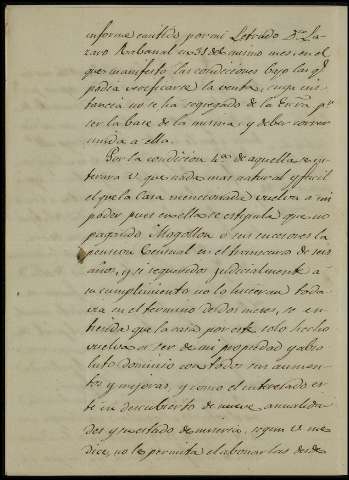 informe emitido por mi Letrado Dn. La-
zaro Rabanal en 31 del mismo mes en el
que manifestó las condiciones bajo las q.e
podia verificarse la venta, cuya ins-
tancia no se ha segregado de la Escra. pr.
ser la base de la misma, y deber correr
unida a ella.
Por la condicion 4.a de aquella se en-
terara V. que nada mas natural y facil
el que la Casa mencionada vuelva a mi
poder pues en ella se estipula que no
pagando Mogollon ó sus sucesores la
pension Censual en el transcurso de seis
años, y si requeridos judicialmente a
su cumplimiento no lo hicieran toda-
via en el termino de dos meses, se en-
tienda que la casa por este solo hecho
vuelva a ser de mi propiedad y abso-
luto dominio con todos sus aumen-
tos y mejoras, y como el interesado es-
té en descubierto de nueve anualida-
des y su estado de miseria, segun V. me
dice, no le permita el abonarlas desde